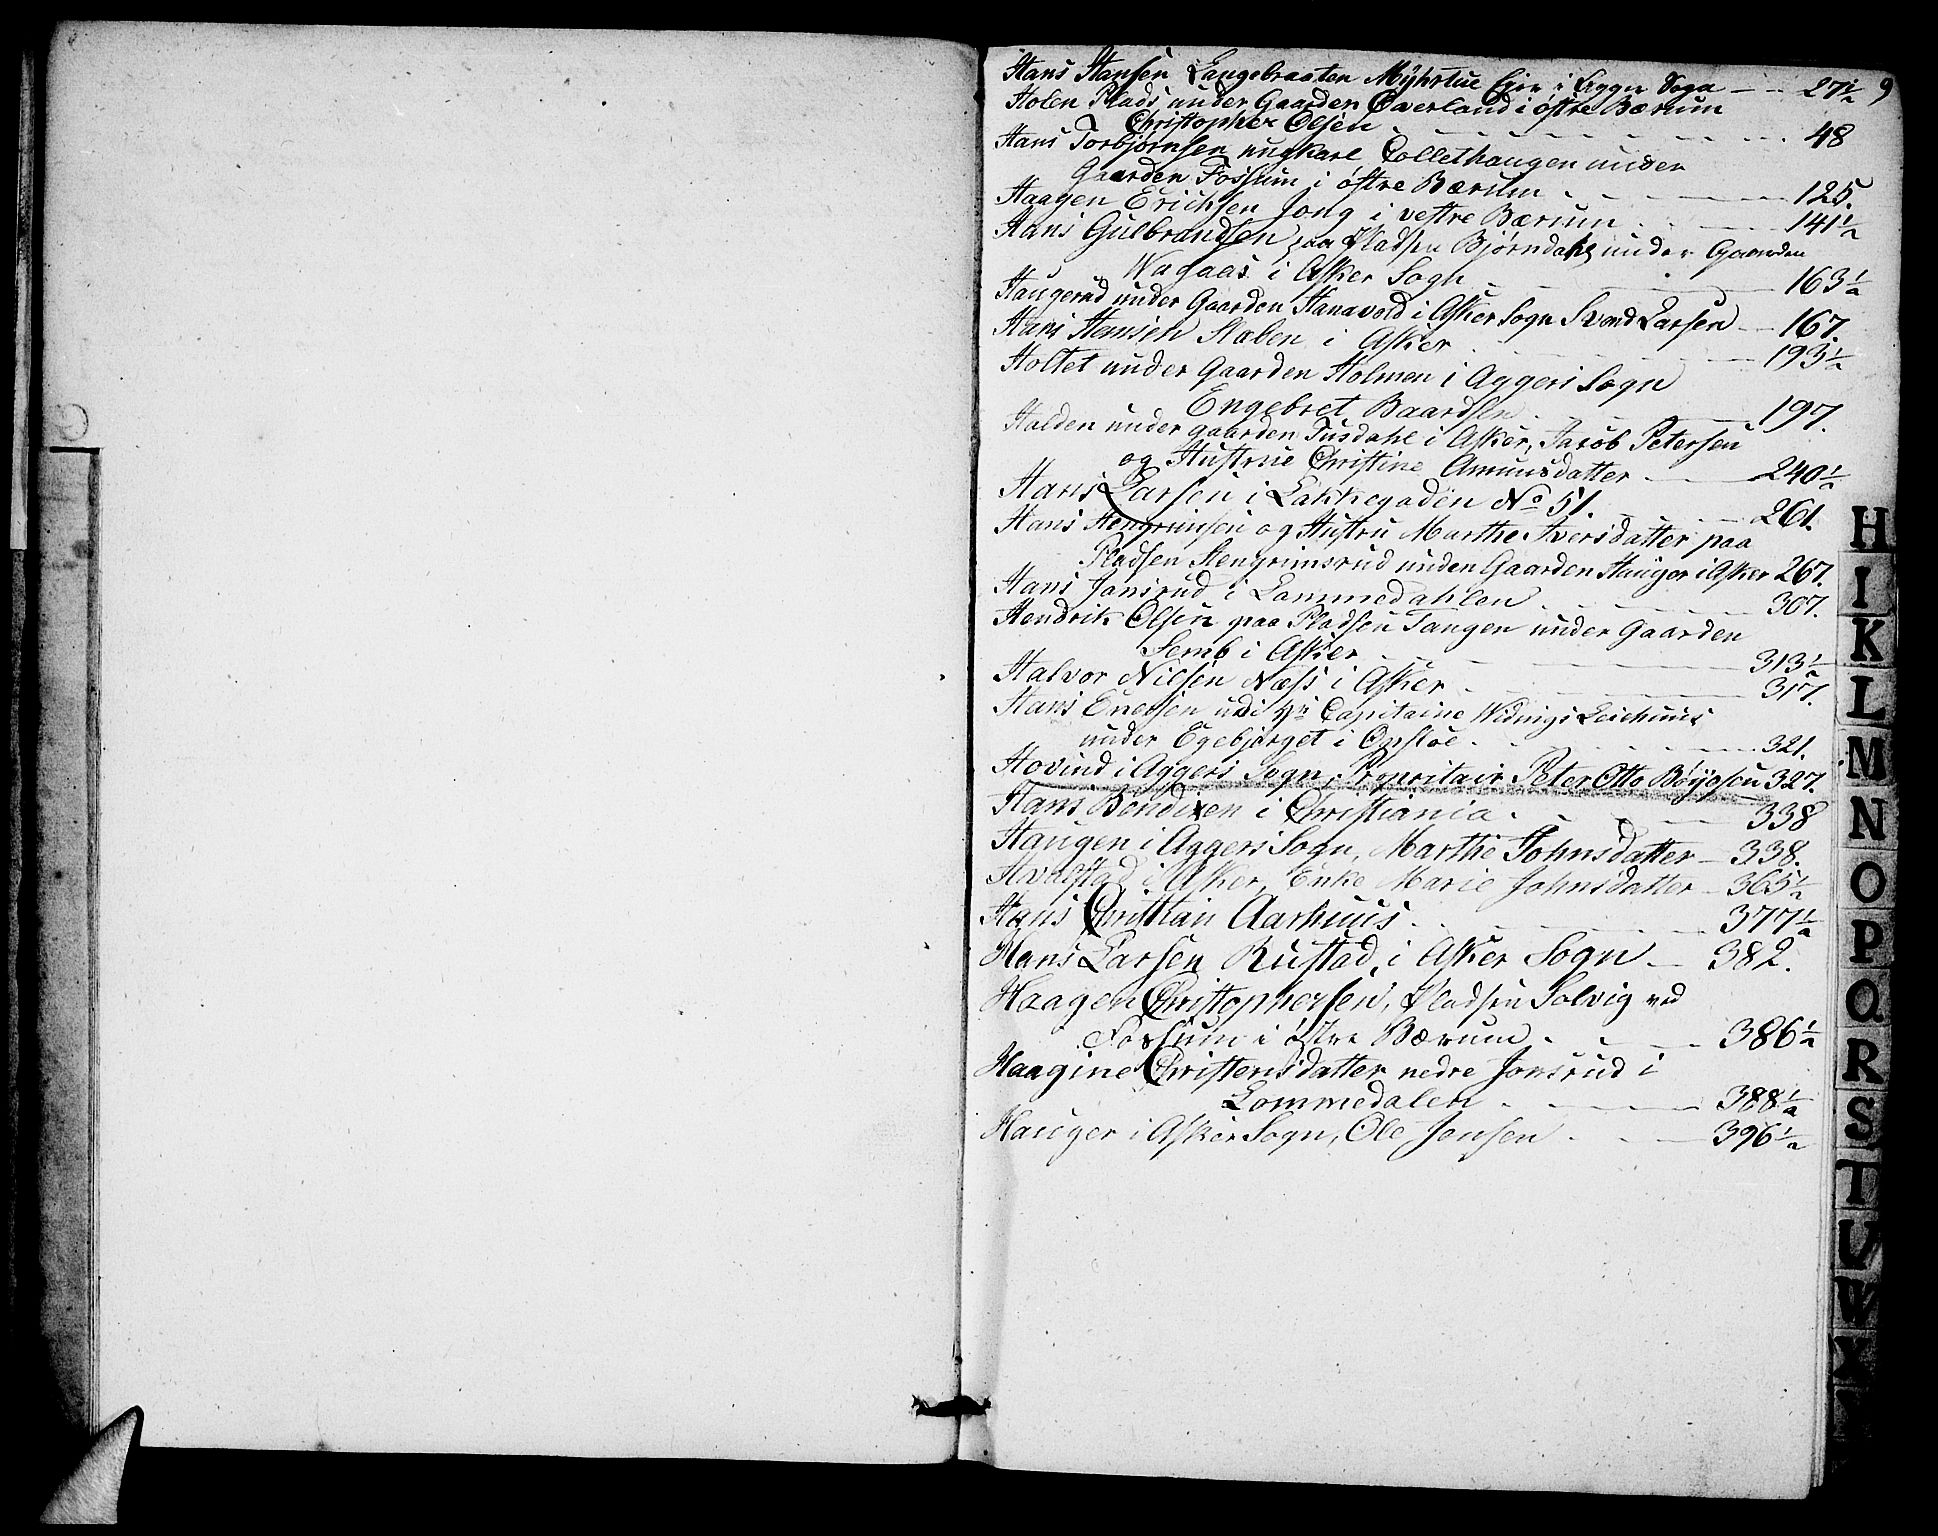 Hans Hansen Langebraaten Myhrstue Eier i Agger Sogn 27½ 9
Holen Plads under Gaarden Øwerland i østre Bærum
Christopher Olsen 48
Hans Torbjørnsen ungkarl Collethaugen under
Gaarden Fossum i østre Bærum 125.
Haagen Erichsen Jong i vestre Bærum 141½
Hans Gulbrandsen paa Pladsen Bjørndahl under Gaarden
Wagaas i Asker Sogn 163½
Haugerud under Gaarden Hanavold i Asker Sogn Svend Larsen 167.
Hans Hansen Staben i Asker 193½
Holtet under Gaarden Holmen i Aggers Sogn
Engebret Baardsen 197.
Halden under gaarden Tusdahl i Asker, Jacob Petersen
og Hustrue Christine Amunsdatter 240½
Hans Larsen i Lakkegaden No 51. 261.
Hans Hengrimsen og Hustru Marthe Iversdatter paa
Pladsen Hengrimsrud under Gaarden Hauger i Asker 267.
Hans Jonsrud i Lommedahlen 307.
Hendrik Olsen paa Pladsen Tangen under Gaarden
Semb i Asker 313½
Halvor Nielsen Næss i Asker 317.
Hans Enersen udi Hr Capitaine Widnigs Leiehuus
under Egebjerget i Opsloe 321.
Hovind i Aggers Sogn, Propritair Peter Otto Bøyesen 327.
Hans Bendixen i Christiania 338
Haugen i Aggers Sogn, Marthe Johnsdatter 338.
Hvalstad i Asker, Enke Marie Johnsdatter 365½
Hans Christian Aarhuus 377½
Hans Larsen Rustad, i Asker Sogn 382.
Haagen Christophersen, Pladsen Solvig ved
Fossum i østre Bærum 386½
Haagine Christensdatter nedre Jonsrud i
Lommedalen 388½
Hauger i Asker Sogn, Ole Jensen 396½
H
I
K
L
M
N
O
P
Q
R
S
T
U
W
X